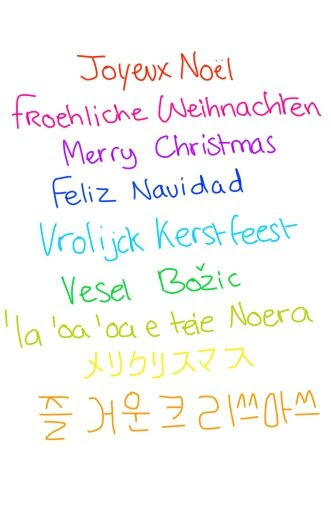 Joyeux Noël
fRoehliche Weihnachten
Merry Christmas
Feliz Navidad
Vrolijck Kerstfeest
Vesel Božic
'Ia 'oa 'oa e teie Noera
メリクリスマス
즐거운 크리쓰마쓰